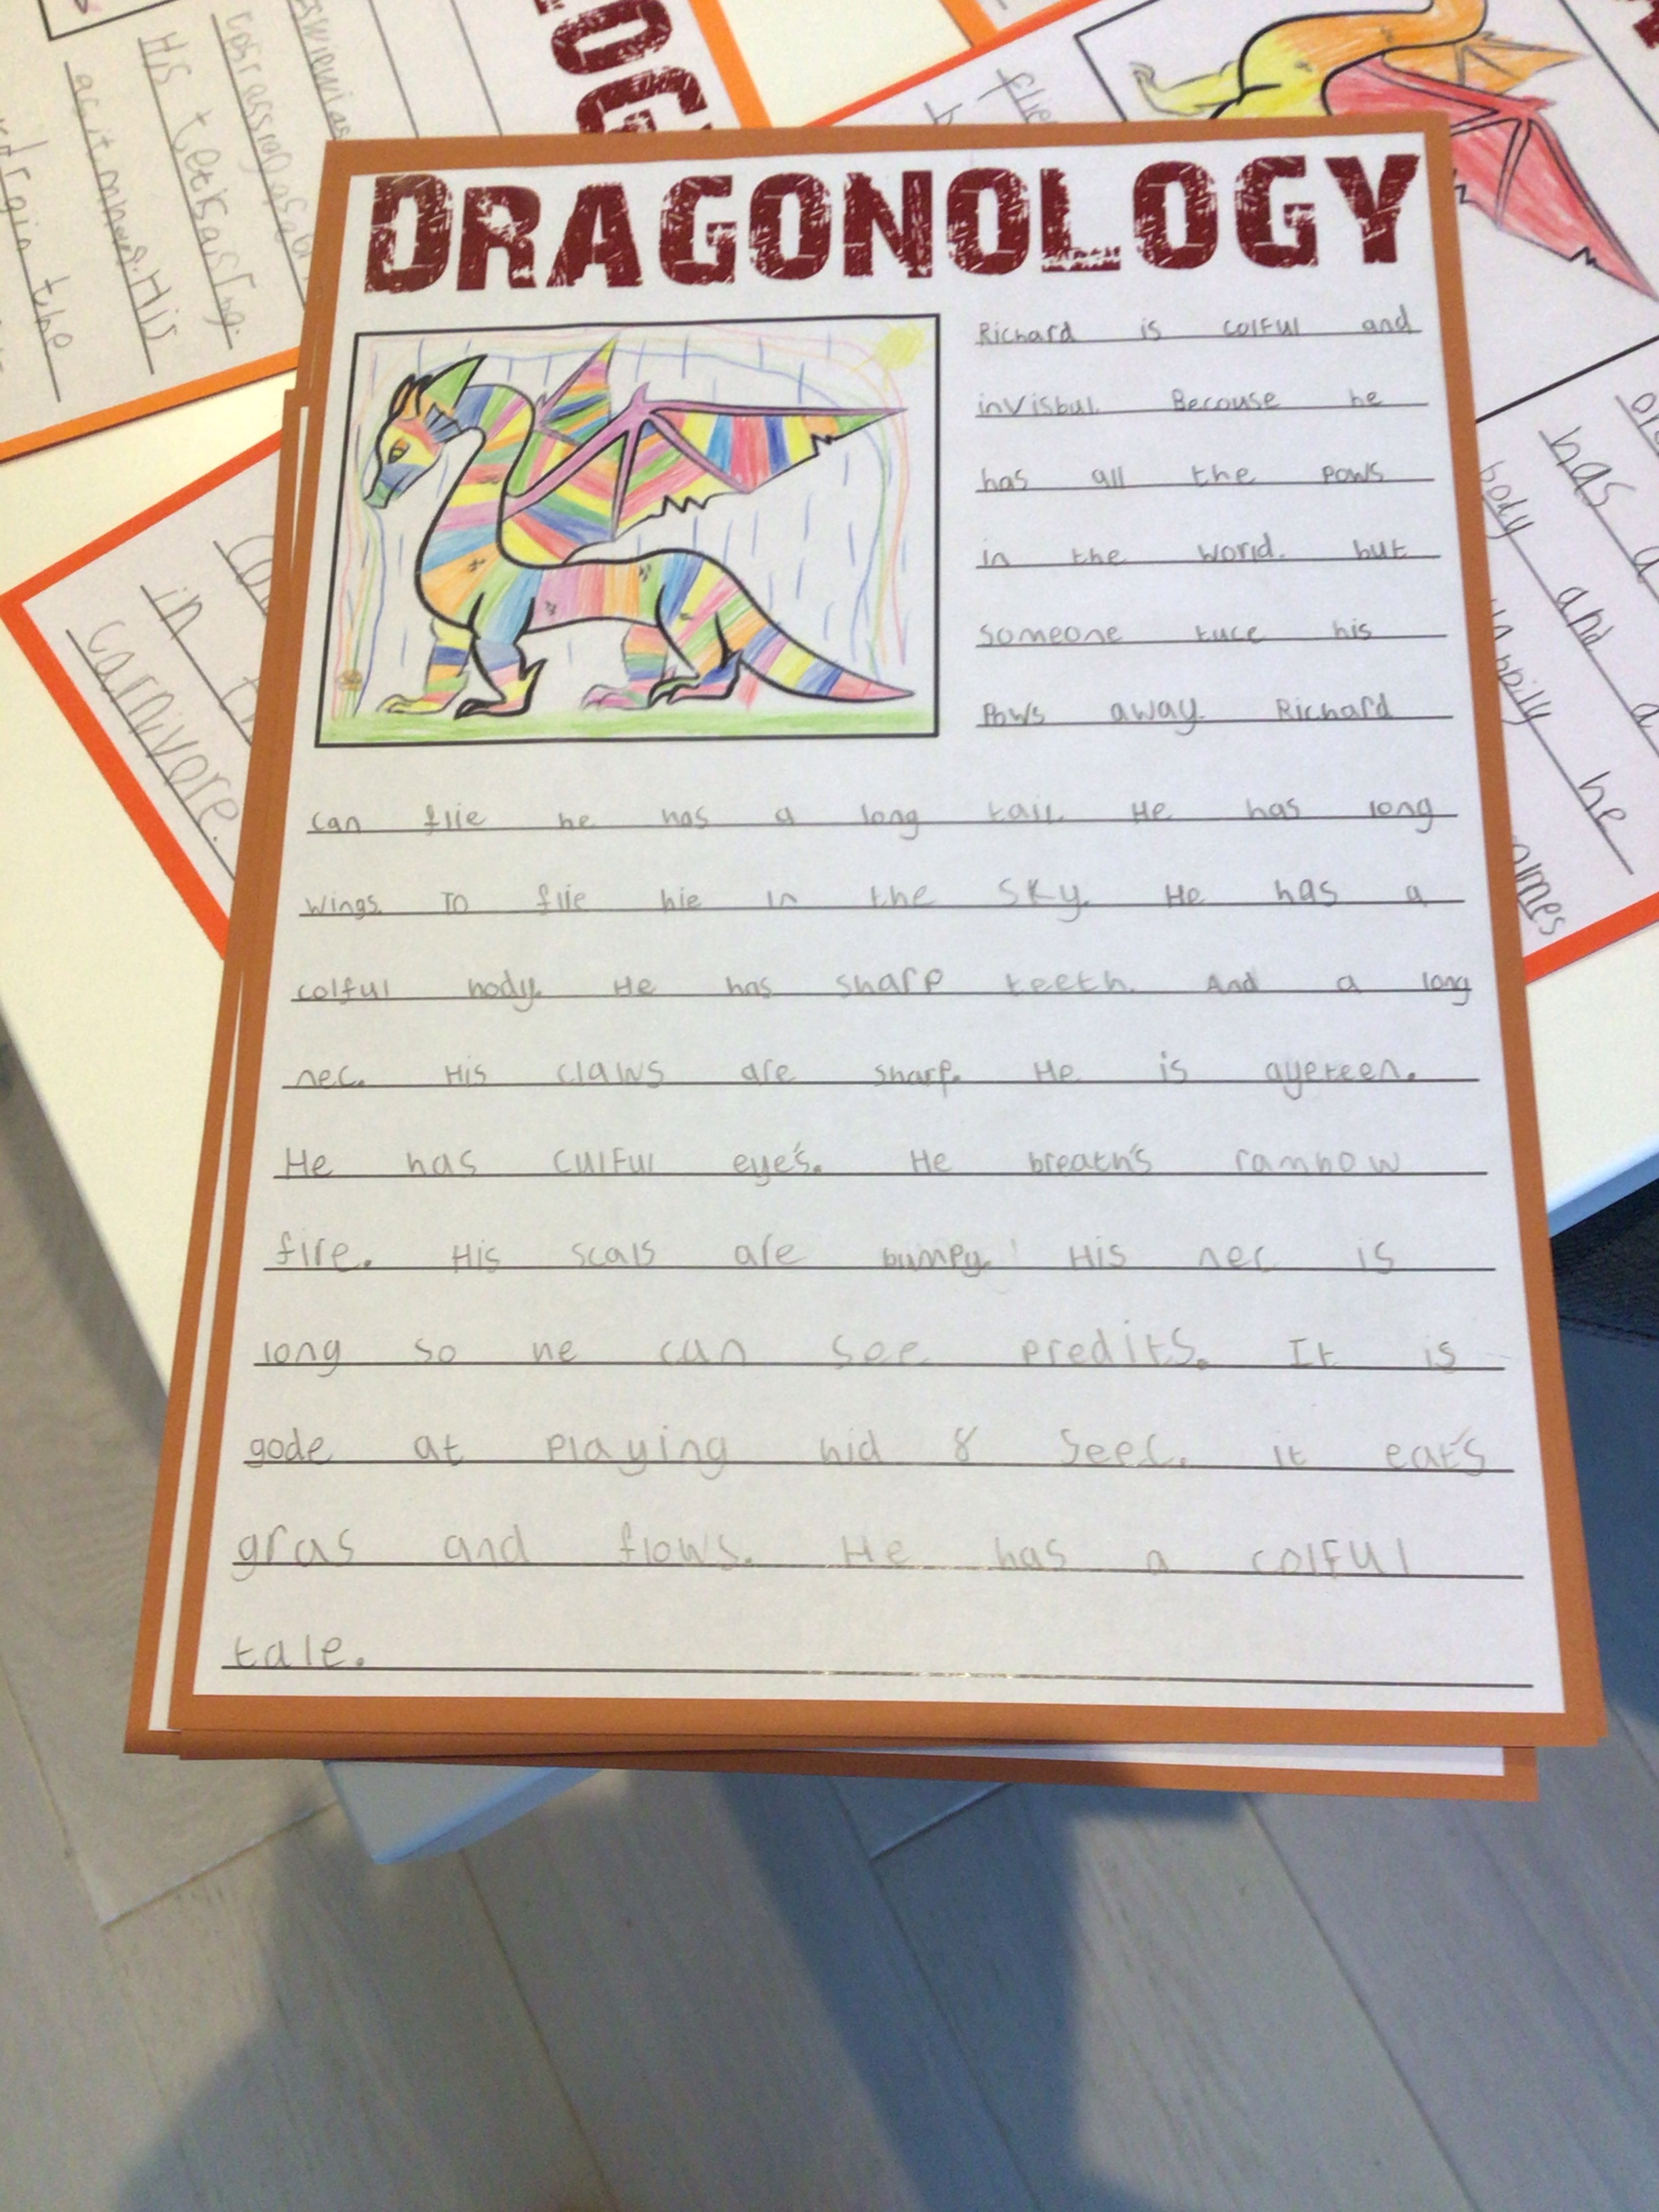 DRAGONOLOGY
Richard is colful and
invisbul. Becouse he
has all the pows
in the world. but
someone tuce his
Pows away. Richard
can flie he has a long tail. He has long
wings. To flie hie in the sky. He has a
colful body. He has sharp teeth. And a long
nec. His claws are sharp. He is ayeteen.
He has culful eye's. He breath's rambow
fire. His scals are bumpy. His nec is
long so he can see predits. It is
gode at playing hid & seec. it eat's
gras and flows. He has a colful
tale.
His teeth as
acitmney. His
the
in
carnivore.
flie
has a
body and a
he